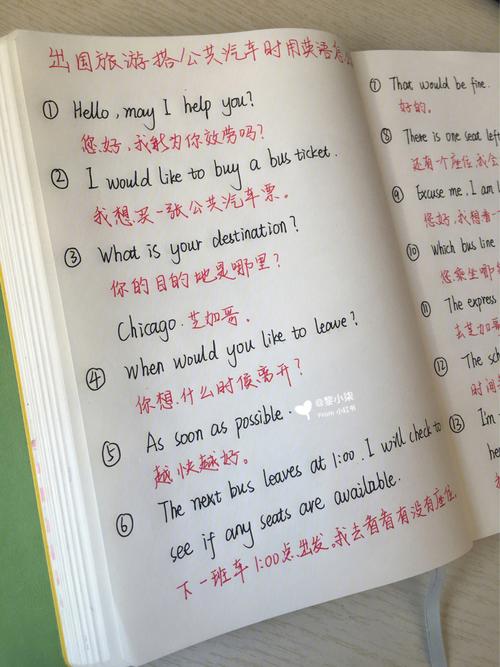 出国旅游搭/公共汽车时用英语怎
① Hello, may I help you?
您好,我能为你效劳吗?
② I would like to buy a bus ticket.
我想买一张公共汽车票。
③ What is your destination?
你的目的地是哪里?
Chicago. 芝加哥.
④ When would you like to leave?
你想什么时候离开?
⑤ As soon as possible.
越快越好。
⑥ The next bus leaves at 1:00. I will check to
see if any seats are available.
下一班车1:00点出发,我去看看有没有座位
@黎小柒
From 小红书
⑦ That would be fine.
好的。
⑧ There is one seat left
还有个座位,我会
⑨ Excuse me, I am
您好,我想看一
⑩ Which bus line
您乘坐哪
⑪ The express
去芝加哥
⑫ The sch
时间
⑬ I'm
her